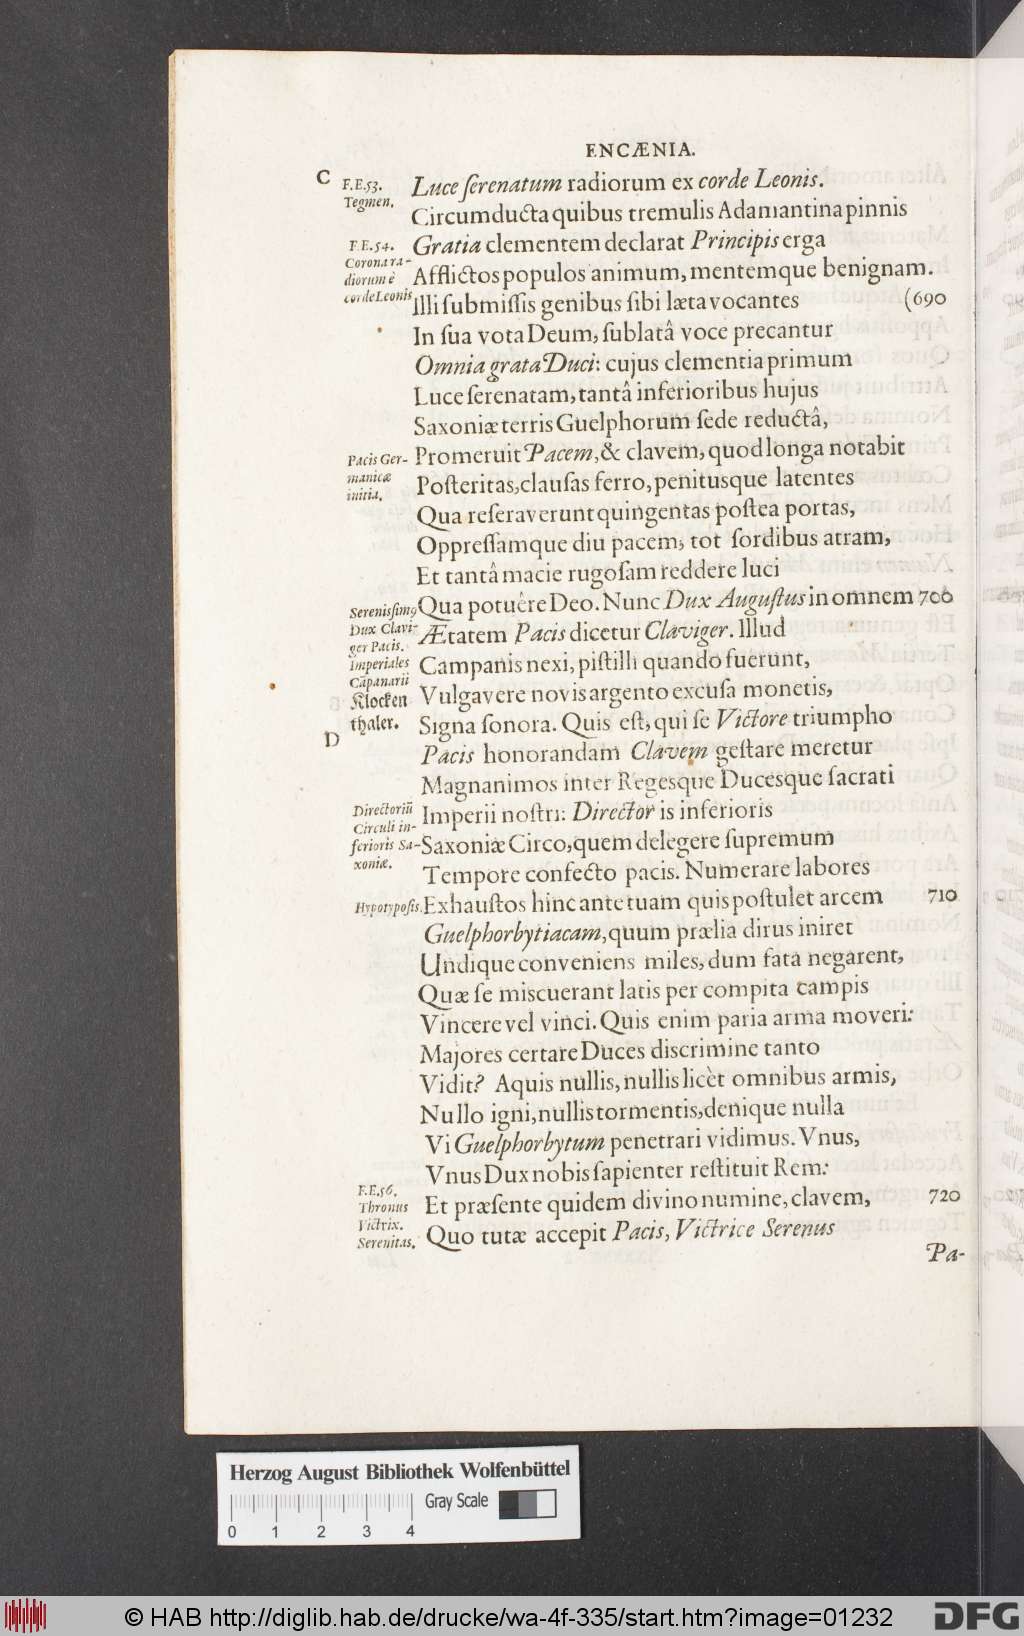 ENCÆNIA.
C F.E.53. Luce ſerenatum radiorum ex corde Leonis.
Tegmen. Circumducta quibus tremulis Adamantina pinnis
F.E.54. Gratia clementem declarat Principis erga
Corona ra-
diorum è Afflictos populos animum, mentemque benignam.
corde Leonis Illi ſubmiſſis genibus ſibi læta vocantes (690
In ſua vota Deum, ſublatâ voce precantur
Omnia grata Duci: cujus clementia primum
Luce ſerenatam, tantâ inferioribus hujus
Saxoniæ terris Guelphorum ſede reductâ,
Pacis Ger- Promeruit Pacem, & clavem, quod longa notabit
manicæ Poſteritas, clauſas ferro, penitusque latentes
initia. Qua reſeraverunt quingentas poſtea portas,
Oppreſſamque diu pacem, tot ſordibus atram,
Et tantâ macie rugoſam reddere luci
Sereniſsimꝰ Qua potuêre Deo. Nunc Dux Auguſtus in omnem 700
Dux Clavi- Ætatem Pacis dicetur Claviger. Illud
ger Pacis.
Imperiales Campanis nexi, piſtilli quando fuerunt,
Cãpanarii
Klocken Vulgavere novis argento excuſa monetis,
thaler. Signa ſonora. Quis eſt, qui ſe Victore triumpho
D
Pacis honorandam Clavem geſtare meretur
Magnanimos inter Regesque Ducesque ſacrati
Directoriũ Imperii noſtri: Director is inferioris
Circuli in-
ferioris Sa- Saxoniæ Circo, quem delegere ſupremum
xoniæ. Tempore confecto pacis. Numerare labores
Hypotypoſis. Exhauſtos hinc ante tuam quis poſtulet arcem 710
Guelphorbytiacam, quum prælia dirus iniret
Undique conveniens miles, dum fata negarent,
Quæ ſe miſcuerant latis per compita campis
Vincere vel vinci. Quis enim paria arma moveri:
Majores certare Duces discrimine tanto
Vidit? Aquis nullis, nullis licèt omnibus armis,
Nullo igni, nullis tormentis, denique nulla
Vi Guelphorbytum penetrari vidimus. Vnus,
Vnus Dux nobis ſapienter reſtituit Rem:
F.E.56.
Thronus Et præſente quidem divino numine, clavem, 720
Victrix.
Serenitas. Quo tutæ accepit Pacis, Victrice Serenus
Pa-
Herzog August Bibliothek Wolfenbüttel
Gray Scale
0 1 2 3 4
© HAB http://diglib.hab.de/drucke/wa-4f-335/start.htm?image=01232
DFG